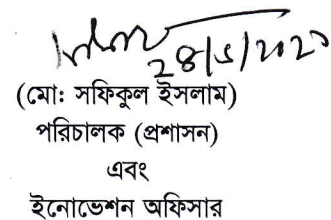 (মোঃ সফিকুল ইসলাম)
পরিচালক (প্রশাসন)
এবং
ইনোভেশন অফিসার